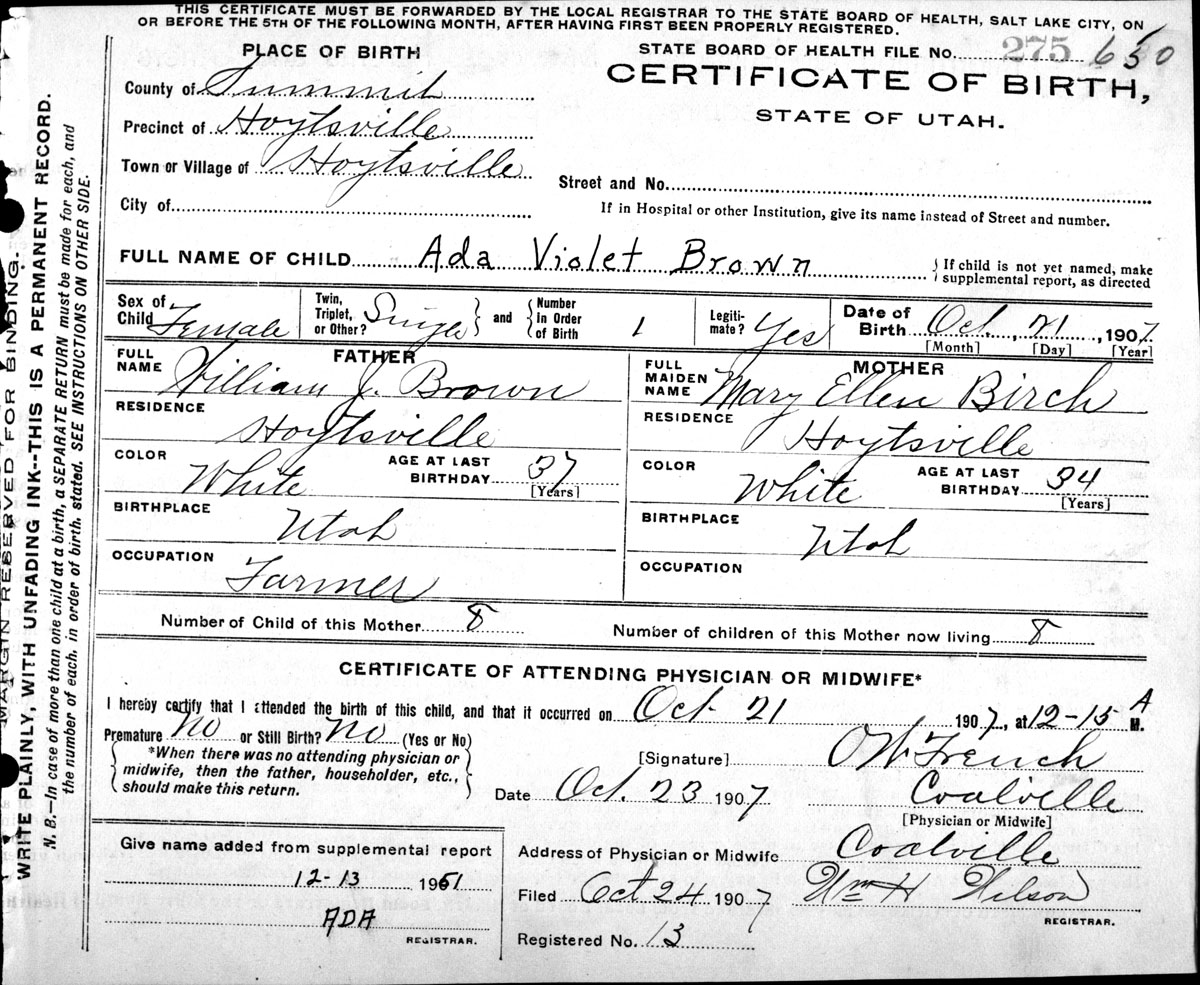 THIS CERTIFICATE MUST BE FORWARDED BY THE LOCAL REGISTRAR TO THE STATE BOARD OF HEALTH, SALT LAKE CITY, ON
OR BEFORE THE 5TH OF THE FOLLOWING MONTH, AFTER HAVING FIRST BEEN PROPERLY REGISTERED.
PLACE OF BIRTH
STATE BOARD OF HEALTH FILE NO. 275 650
CERTIFICATE OF BIRTH,
STATE OF UTAH.
County of Summit
Precinct of Hoytsville
Town or Village of Hoytsville
City of
Street and No.
If in Hospital or other Institution, give its name instead of Street and number.
FULL NAME OF CHILD Ada Violet Brown
If child is not yet named, make
supplemental report, as directed
Sex of Child Female
Twin, Triplet, or Other? Single and Number in Order of Birth 1
Legitimate? Yes
Date of Birth Oct. 21, 1907
[Month] [Day] [Year]
FATHER
FULL NAME William J. Brown
RESIDENCE Hoytsville
COLOR White AGE AT LAST BIRTHDAY 37
[Years]
BIRTHPLACE Utah
OCCUPATION Farmer
MOTHER
FULL MAIDEN NAME Mary Ellen Birch
RESIDENCE Hoytsville
COLOR White AGE AT LAST BIRTHDAY 34
[Years]
BIRTHPLACE Utah
OCCUPATION
Number of Child of this Mother 8 Number of children of this Mother now living 8
CERTIFICATE OF ATTENDING PHYSICIAN OR MIDWIFE*
I hereby certify that I attended the birth of this child, and that it occurred on Oct 21 1907, at 12-15 A M.
Premature No or Still Birth? No (Yes or No)
*When there was no attending physician or
midwife, then the father, householder, etc.,
should make this return.
[Signature] O W French
Date Oct. 23 1907 Coalville
[Physician or Midwife]
Give name added from supplemental report
12-13 1961
ADA
REGISTRAR.
Address of Physician or Midwife Coalville
Filed Oct 24 1907 Wm H Wilson
REGISTRAR.
Registered No. 13
MARGIN RESERVED FOR BINDING.
WRITE PLAINLY, WITH UNFADING INK--THIS IS A PERMANENT RECORD.
N. B.—In case of more than one child at a birth, a SEPARATE RETURN must be made for each, and
the number of each, in order of birth, stated. SEE INSTRUCTIONS ON OTHER SIDE.